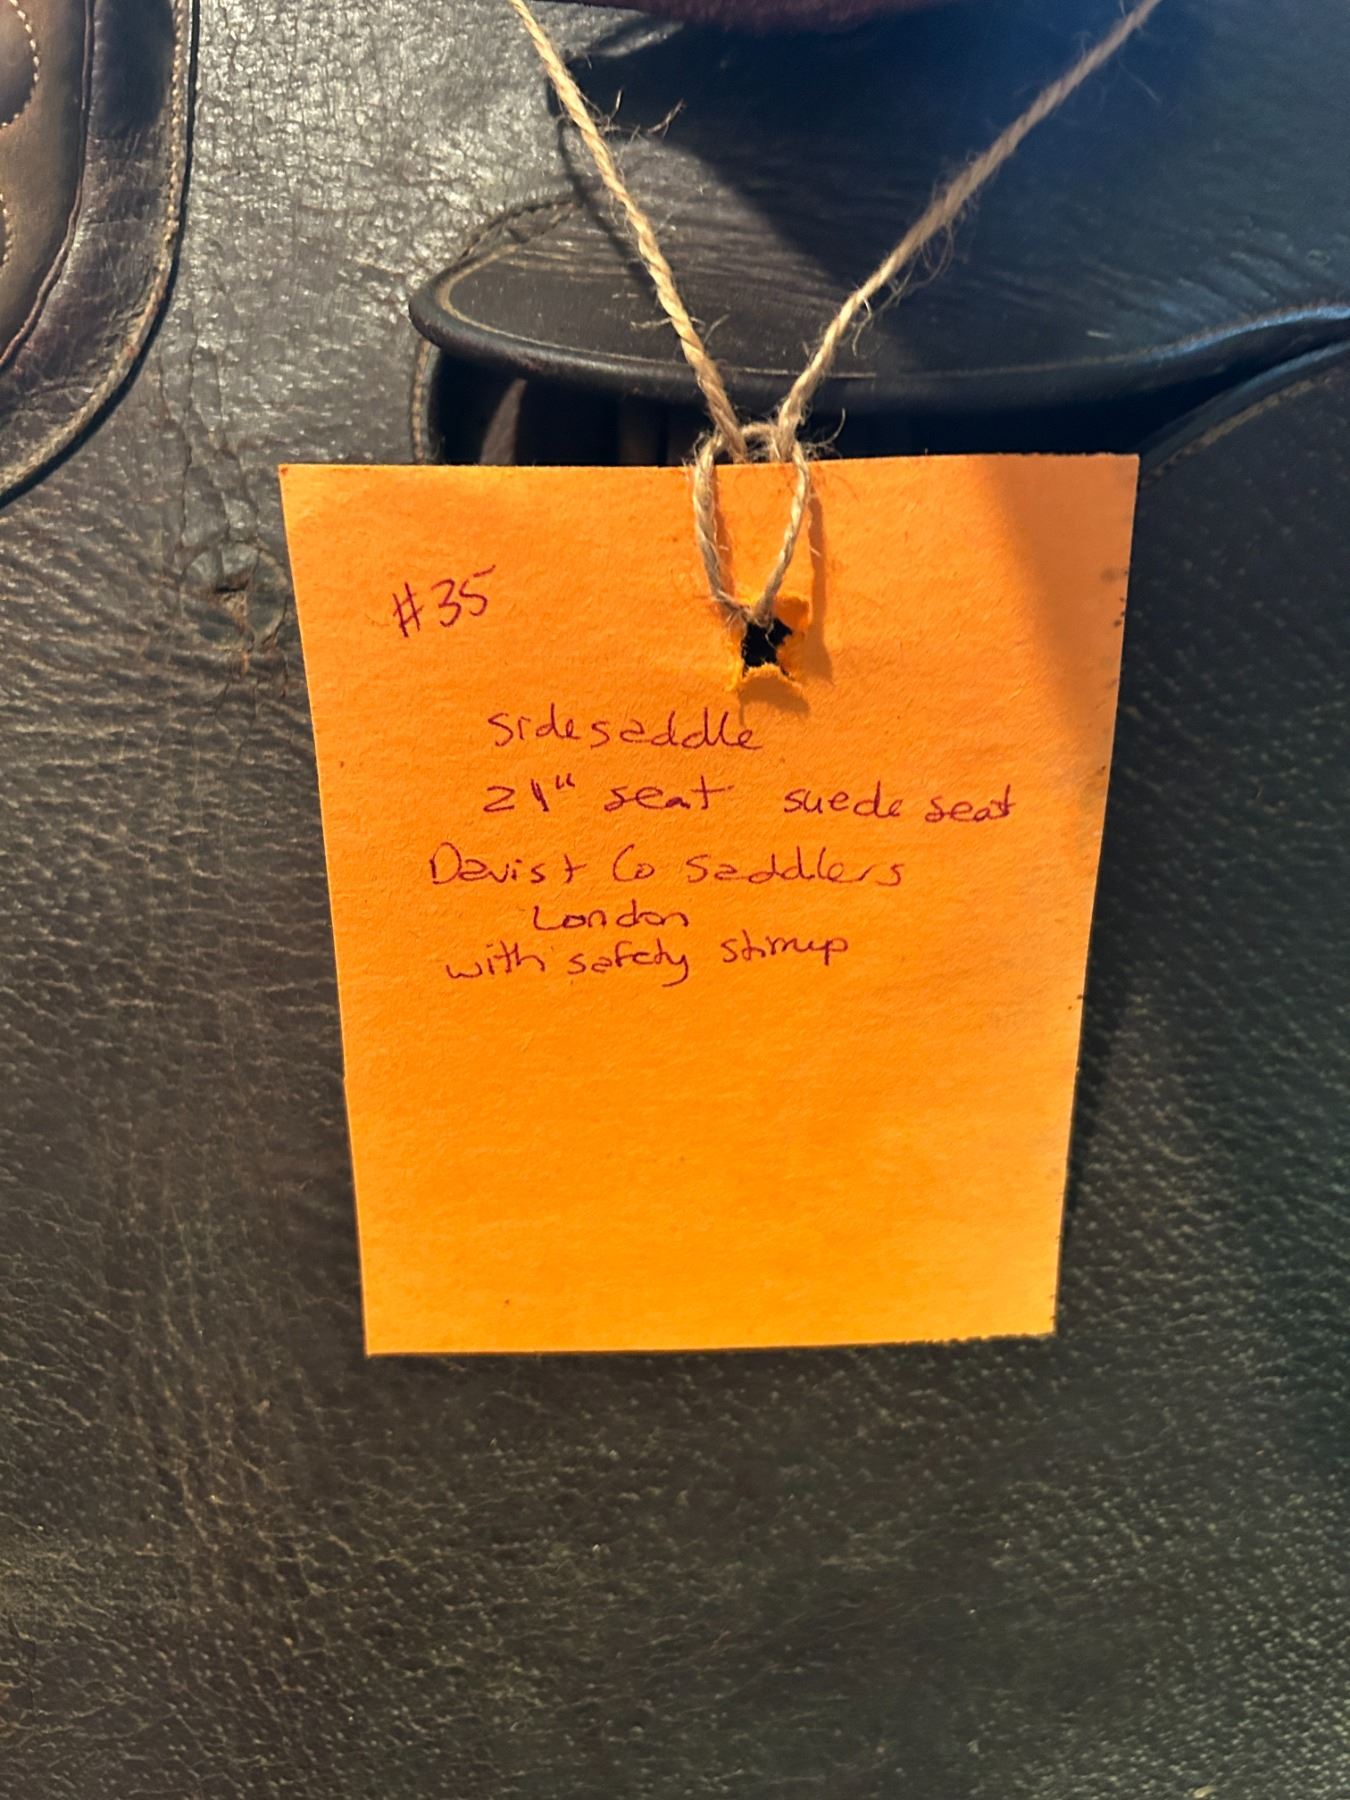 #35
sidesaddle
21" seat suede seat
Davis + Co Saddlers
London
with safety stirrup